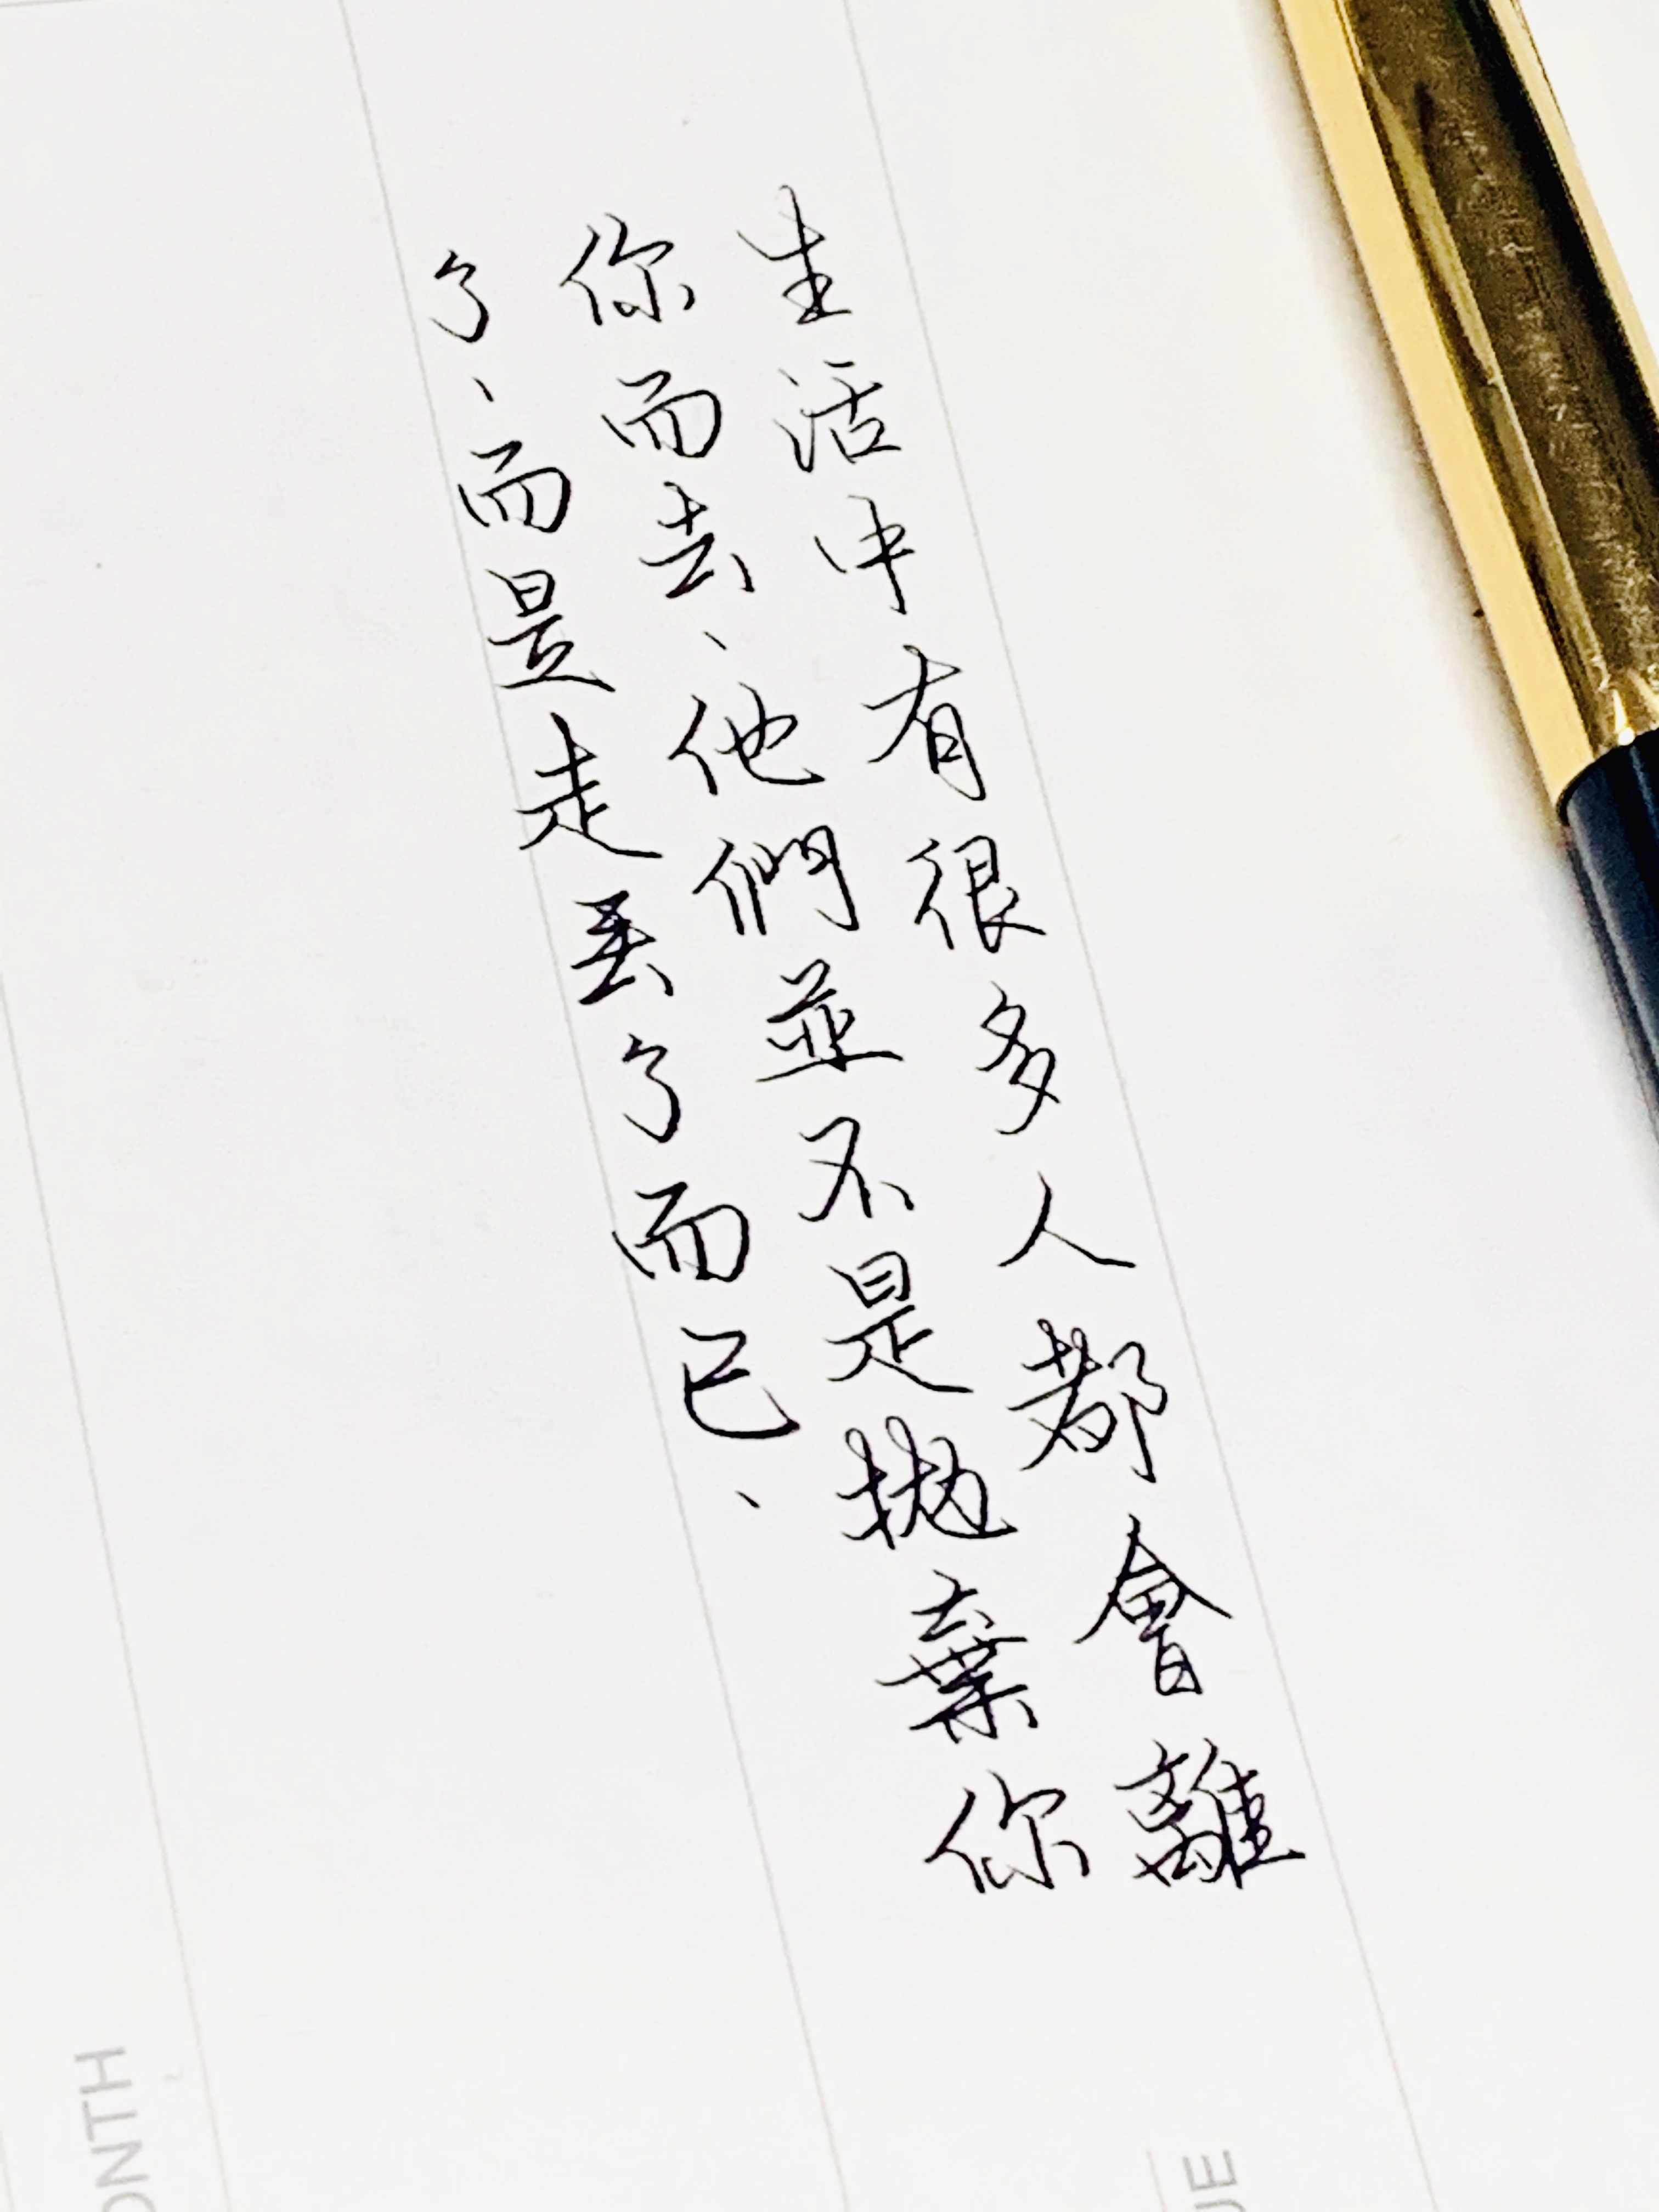 生活中有很多人都會離
你而去、他們並不是拋棄你
了、而是走丟了而已、
ONTH
UE